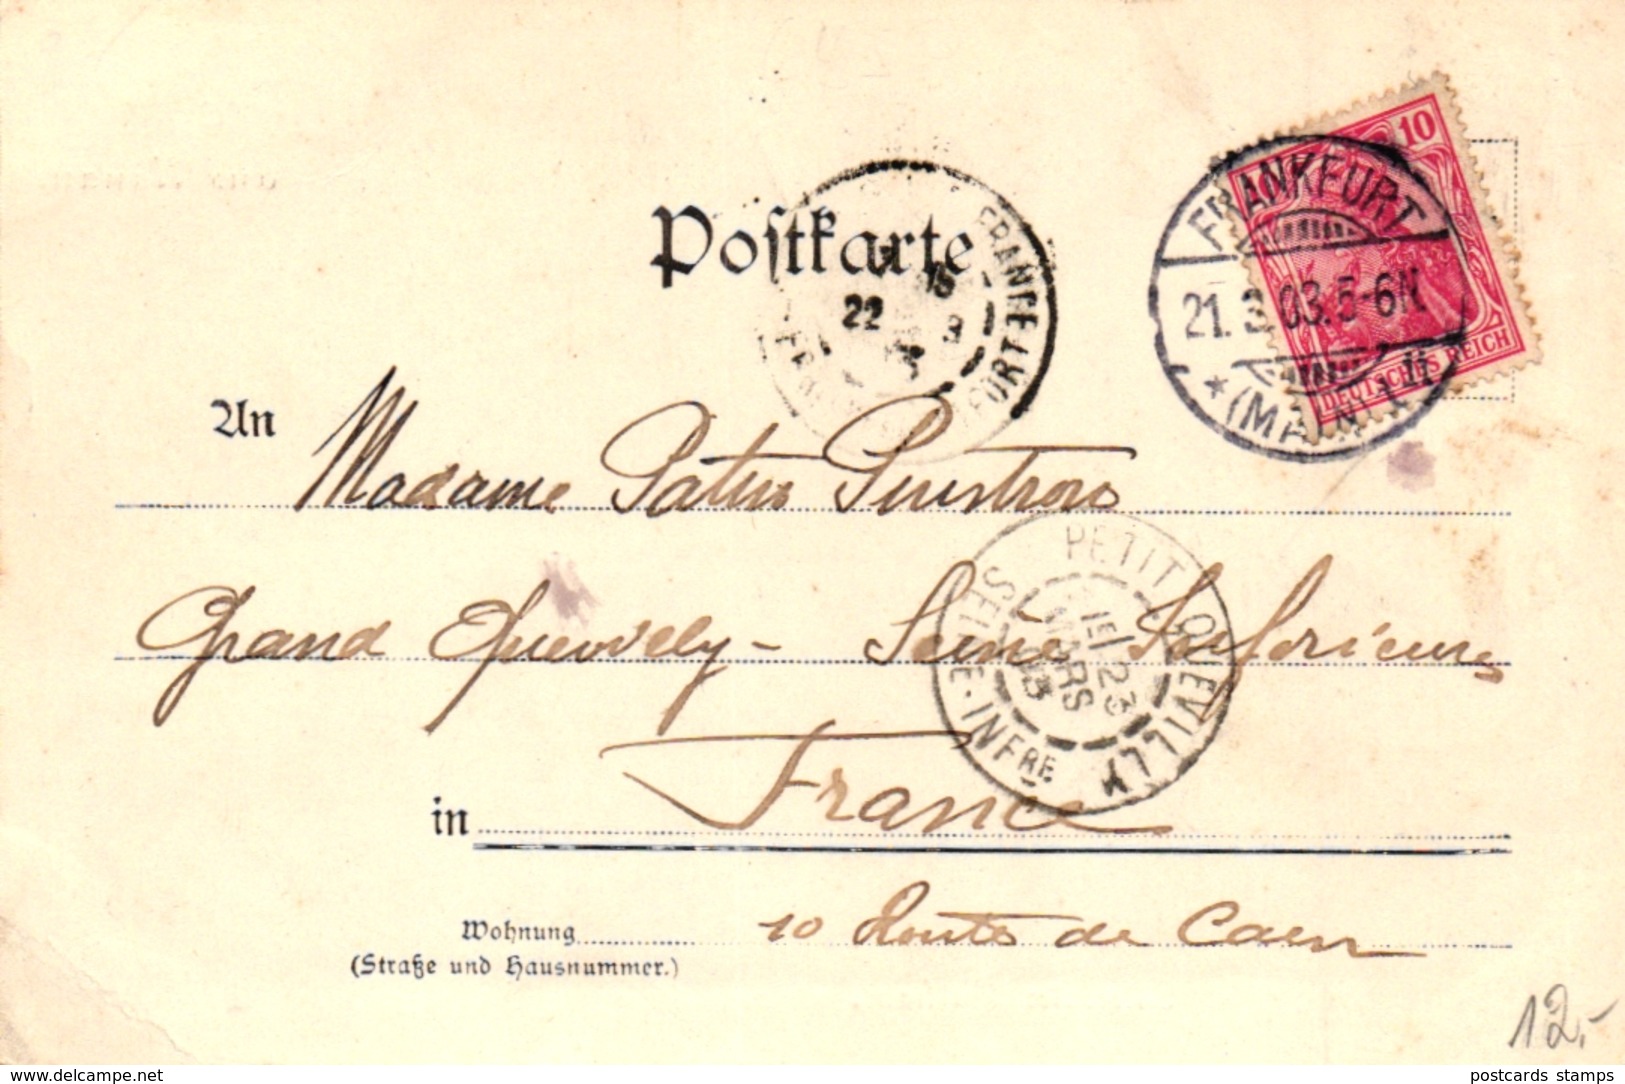 Postkarte
10
DEUTSCHES REICH
FRANKFURT
21. 3. 03. 5-6N.
* (MAIN) *
FRANCF
FORT
22
3
An Madame
PETIT QUEVILLY
15 / 23
MARS
03
SEINE-INFRE
Grand Quevilly - Seine Inférieure
in France
Wohnung 10 Route de Caen
(Straße und Hausnummer.)
12,-
www.delcampe.net
postcards stamps